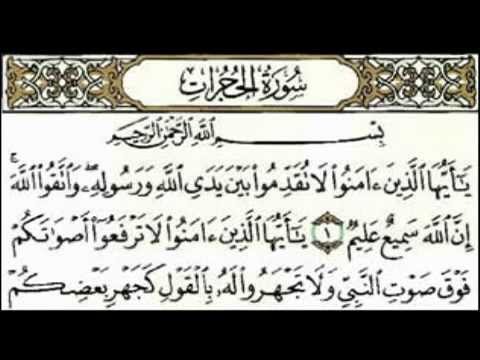 سُورَةُ الحُجُرَاتِ
بِسْمِ ٱللَّهِ ٱلرَّحْمَٰنِ ٱلرَّحِيمِ
يَٰٓأَيُّهَا ٱلَّذِينَ ءَامَنُوا۟ لَا تُقَدِّمُوا۟ بَيْنَ يَدَىِ ٱللَّهِ وَرَسُولِهِۦ ۖ وَٱتَّقُوا۟ ٱللَّهَ ۚ
إِنَّ ٱللَّهَ سَمِيعٌ عَلِيمٌ ١ يَٰٓأَيُّهَا ٱلَّذِينَ ءَامَنُوا۟ لَا تَرْفَعُوٓا۟ أَصْوَٰتَكُمْ
فَوْقَ صَوْتِ ٱلنَّبِىِّ وَلَا تَجْهَرُوا۟ لَهُۥ بِٱلْقَوْلِ كَجَهْرِ بَعْضِكُمْ